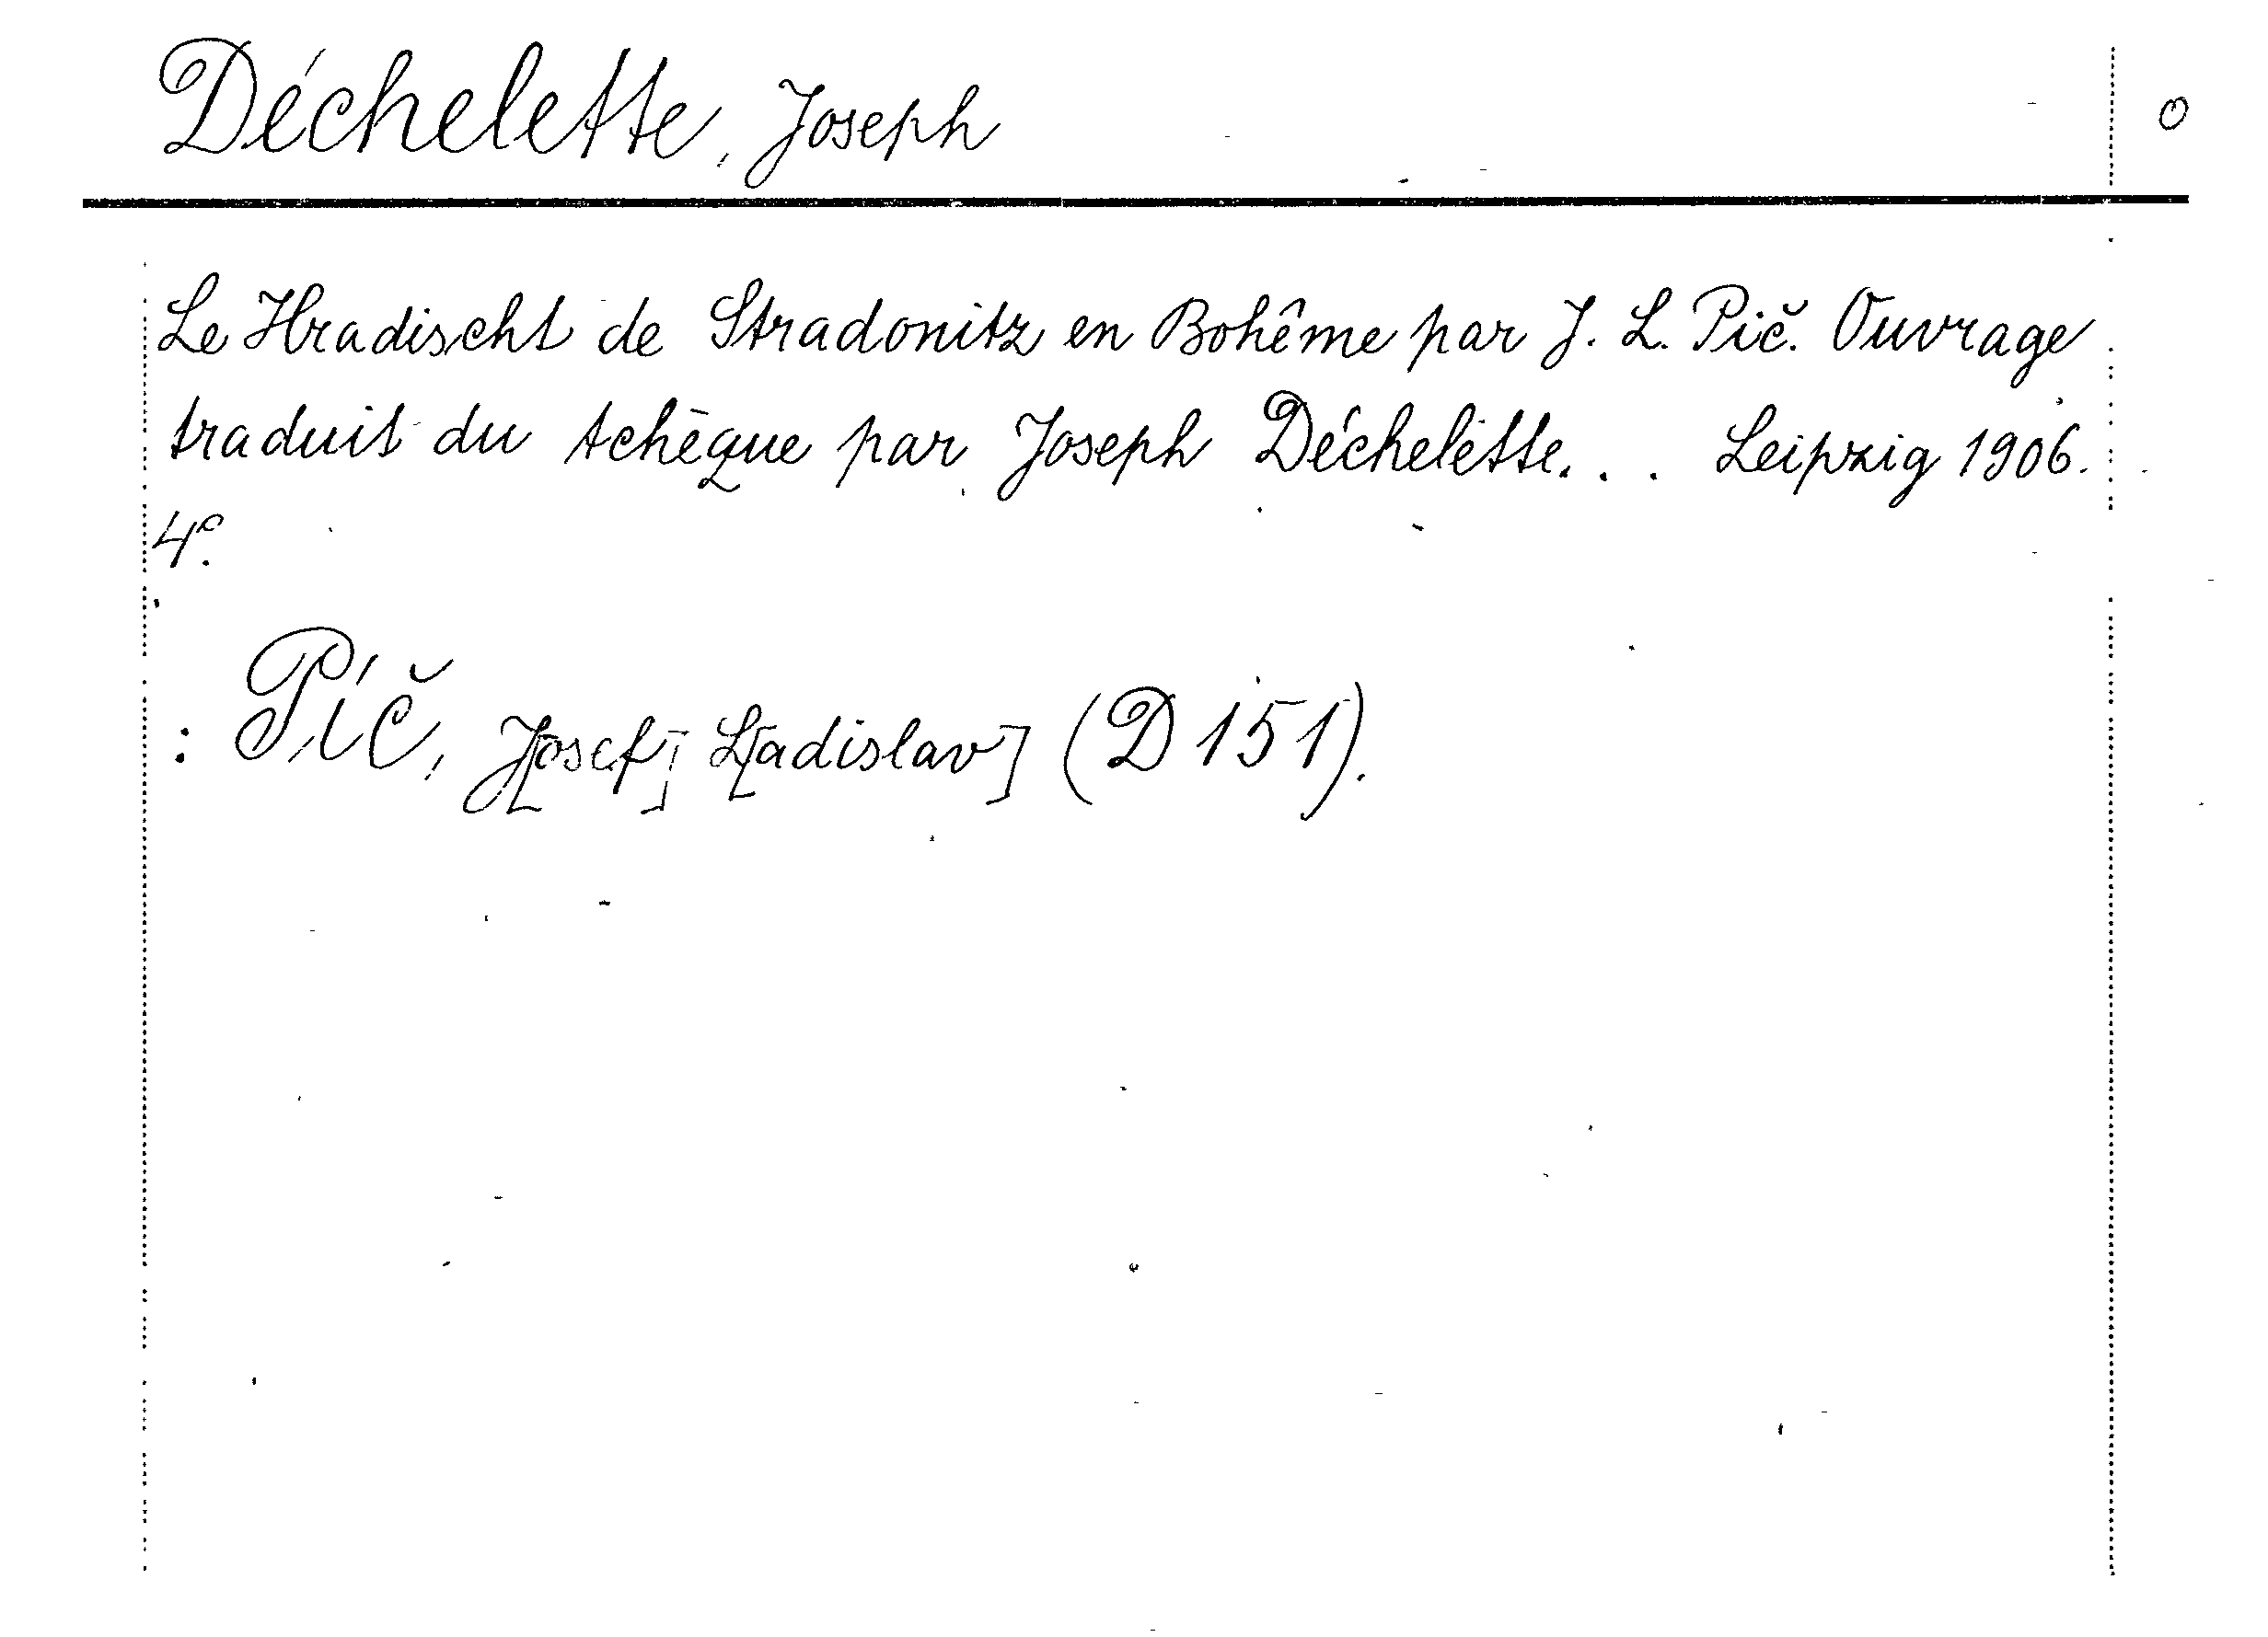 Déchelette, Joseph
0
Le Hradischt de Stradonitz en Bohême par J. L. Pič. Ouvrage
traduit du tchèque par Joseph Déchelette... Leipzig 1906.
4°.
: Píč, J[osef] L[adislav] (D 151).